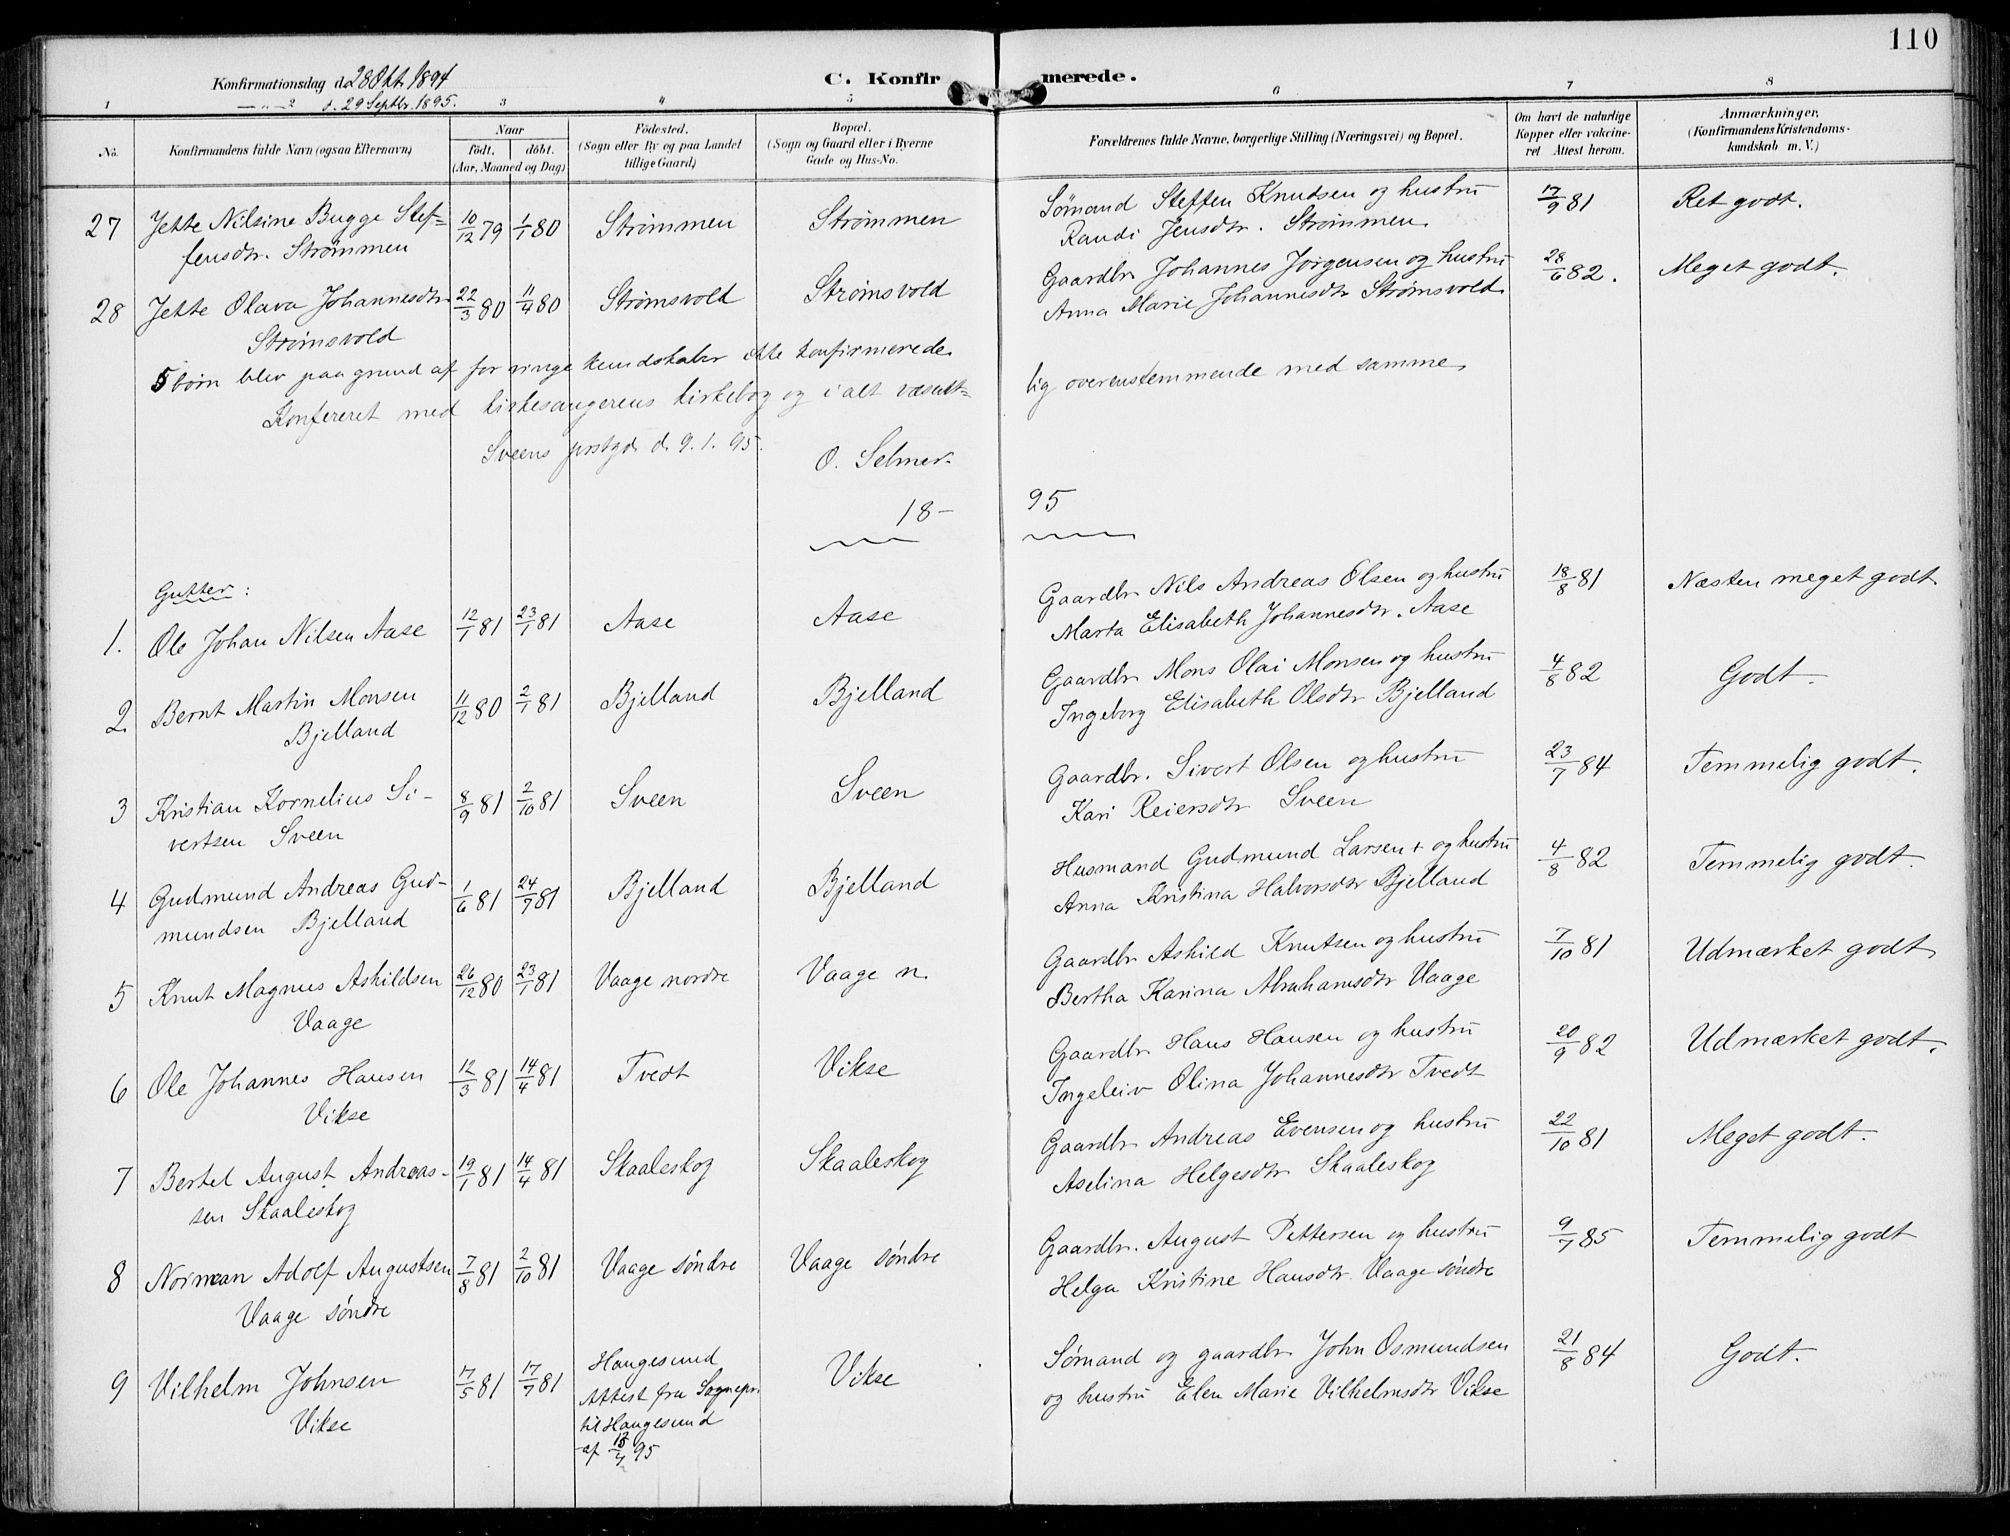 110
Konfirmationsdag d. 28 Okt. 1894
— „ — 2 d. 29 Septbr. 1895.
C. Konfirmerede.
1 3 4 5 6 7 8
No. Konfirmandens fulde Navn (ogsaa Efternavn) Naar født. døbt. (Aar, Maaned og Dag) Fødested. (Sogn eller By og paa Landet tillige Gaard) Bopæl. (Sogn og Gaard eller i Byerne Gade og Hus-No. Forældrenes fulde Navne, borgerlige Stilling (Næringsvei) og Bopæl. Om havt de naturlige Kopper eller vakcineret Attest herom. Anmærkninger. (Konfirmandens Kristendomskundskab m. V.)
27 Jette Nilsine Bugge Stef- 10/12 79 1/1 80 Strømmen Strømmen Sømand Steffen Knudsen og hustru 17/9 81 Ret godt.
fensdtr. Strømmen Randi Jensdtr. Strømmen.
28 Jette Olava Johannesdtr 22/3 80 11/4 80 Strømsvold Strømsvold Gaardbr Johannes Jørgensen og hustru 28/6 82. Meget godt.
Strømsvold Anna Marie Johannesdtr Strømsvold.
5 børn blev paa grund af for ringe kundskaber ikke konfirmerede.
Konfereret med kirkesangerens kirkebog og i alt væsent- lig overenstemmende med samme.
Sveens prstgd. d. 9.1.95.
O. Selmer.
18- 95
Gutter:
1. Ole Johan Nilsen Aase 12/1 81 23/1 81 Aase Aase Gaardbr Nils Andreas Olsen og hustru 18/8 81 Næsten meget godt
Marta Elisabeth Johannesdtr. Aase
2. Bernt Martin Monsen 11/12 80 2/1 81 Bjelland Bjelland Gaardbr Mons Olai Monsen og hustru 4/8 82 Godt.
Bjelland Ingeborg Elisabeth Olsdtr Bjelland
3 Kristian Kornelius Si- 8/9 81 2/10 81 Sveen Sveen Gaardbr. Sivert Olsen og hustru 23/7 84 Temmelig godt.
vertsen Sveen Kari Reiersdtr Sveen
4 Gudmund Andreas Gud- 1/6 81 24/7 81 Bjelland Bjelland Husmand Gudmund Larsen + og hustru 4/8 82 Temmelig godt.
mundsen Bjelland Anna Kristina Halvorsdtr Bjelland
5 Knut Magnus Askildsen 26/12 80 23/1 81 Vaage nordre Vaage n. Gaardbr Askild Knutsen og hustru 7/10 81 Udmærket godt
Vaage Bertha Karina Abrahamsdtr Vaage
6 Ole Johannes Hansen 12/3 81 14/4 81 Tvedt Vikse Gaardbr Hans Hansen og hustru 20/9 82 Udmærket godt.
Vikse Ingeleiv Olina Johannesdtr Tvedt
7 Bertel August Andreas- 19/1 81 14/4 81 Skaaleskog Skaaleskog Gaardbr Andreas Evensen og hustru 22/10 81 Meget godt.
sen Skaaleskog Aselina Helgesdtr Skaaleskog
8 Norman Adolf Augustsen 7/8 81 2/10 81 Vaage søndre Vaage søndre Gaardbr. August Pettersen og hustru 9/7 85 Temmelig godt
Vaage søndre Helga Kristine Hansdtr. Vaage søndre
9 Vilhelm Johnsen 17/5 81 17/7 81 Haugesund Vikse Sømand og gaardbr John Osmundsen 21/8 84 Godt.
Vikse Attest fra Sognepr. og hustru Elen Marie Vilhelmsdtr Vikse
til Haugesund
af 95